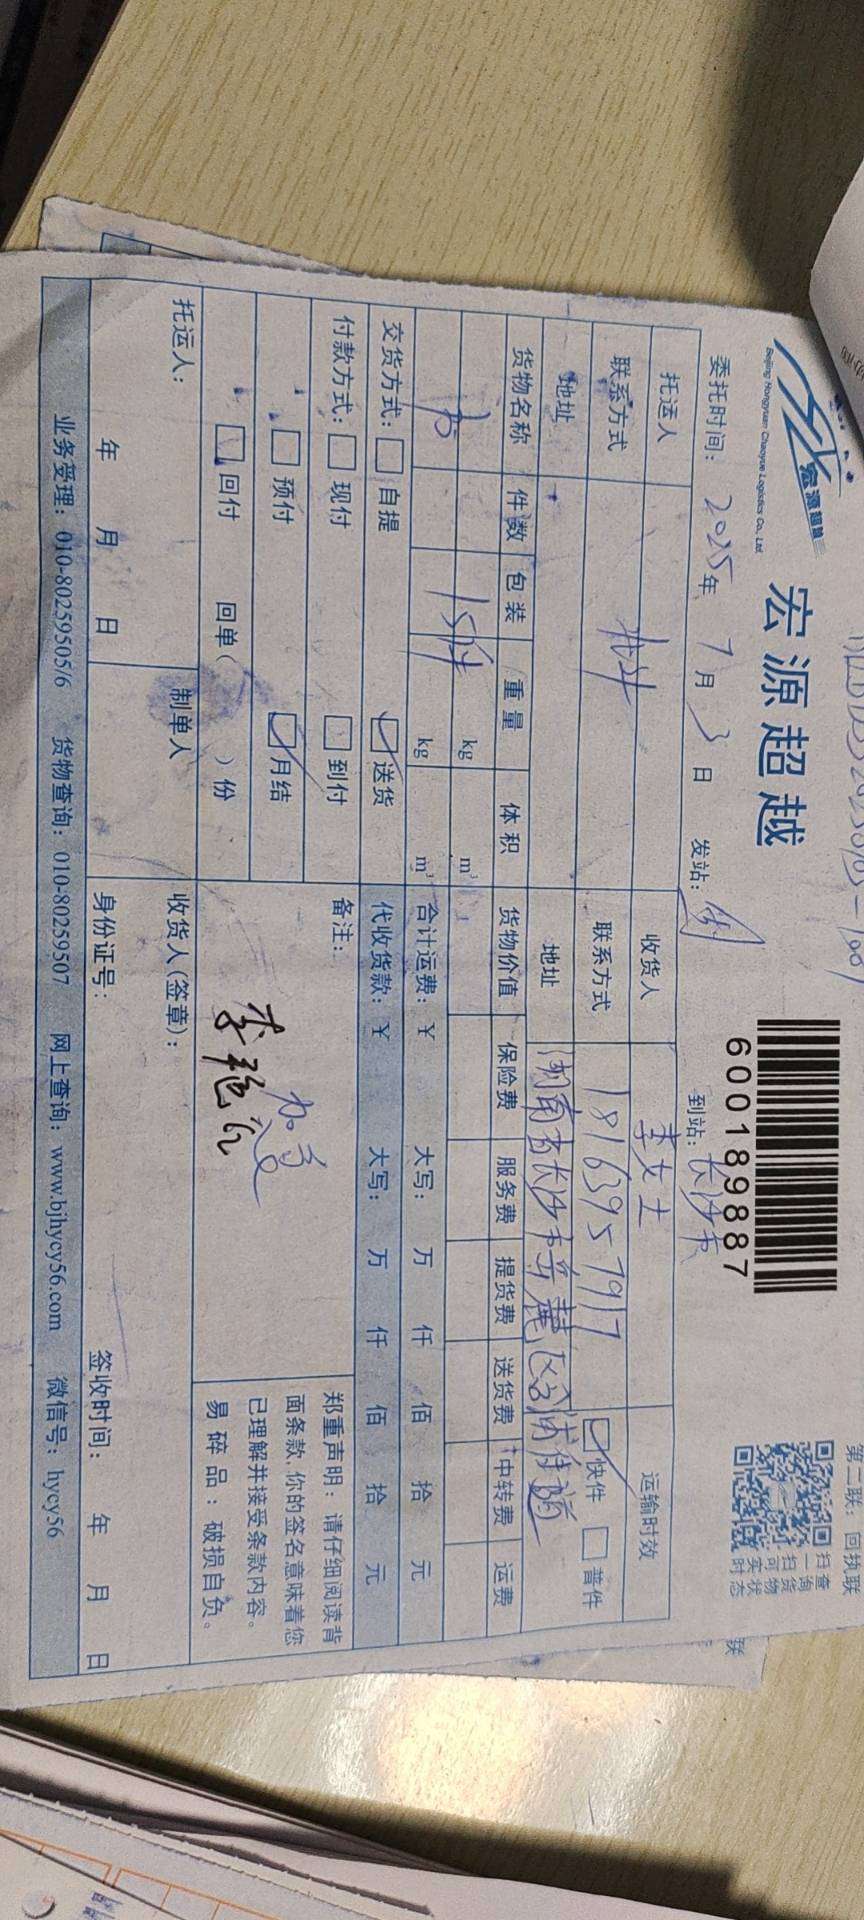 第二联：回执联
宏源超越
Beijing Hongyuan Chaoyue Logistics Co., Ltd
宏源超越
600189887
扫一扫可实时
查询货物状态
委托时间：2025年7月3日 发站： 到站：长沙
托运人 收货人 李女士 运输时效
联系方式 联系方式 18163957917 快件 普件
地址 地址 湖南省长沙市岳麓区
货物名称 件数 包装 重量 体积 货物价值 保险费 服务费 提货费 送货费 中转费 运费
kg m³
15件 kg m³ 合计运费：¥ 大写： 万 仟 佰 拾 元
交货方式： 自提 送货 代收货款：¥ 大写： 万 仟 佰 拾 元
付款方式： 现付 到付 备注：
预付 月结
回付 回单（ ）份
加急
郑重声明：请仔细阅读背
面条款，你的签名意味着您
已理解并接受条款内容。
易碎品：破损自负。
托运人： 制单人 收货人(签章)：
年 月 日 身份证号： 签收时间： 年 月 日
业务受理：010-80259505/6 货物查询：010-80259507 网上查询：www.bjhycy56.com 微信号：hycy56